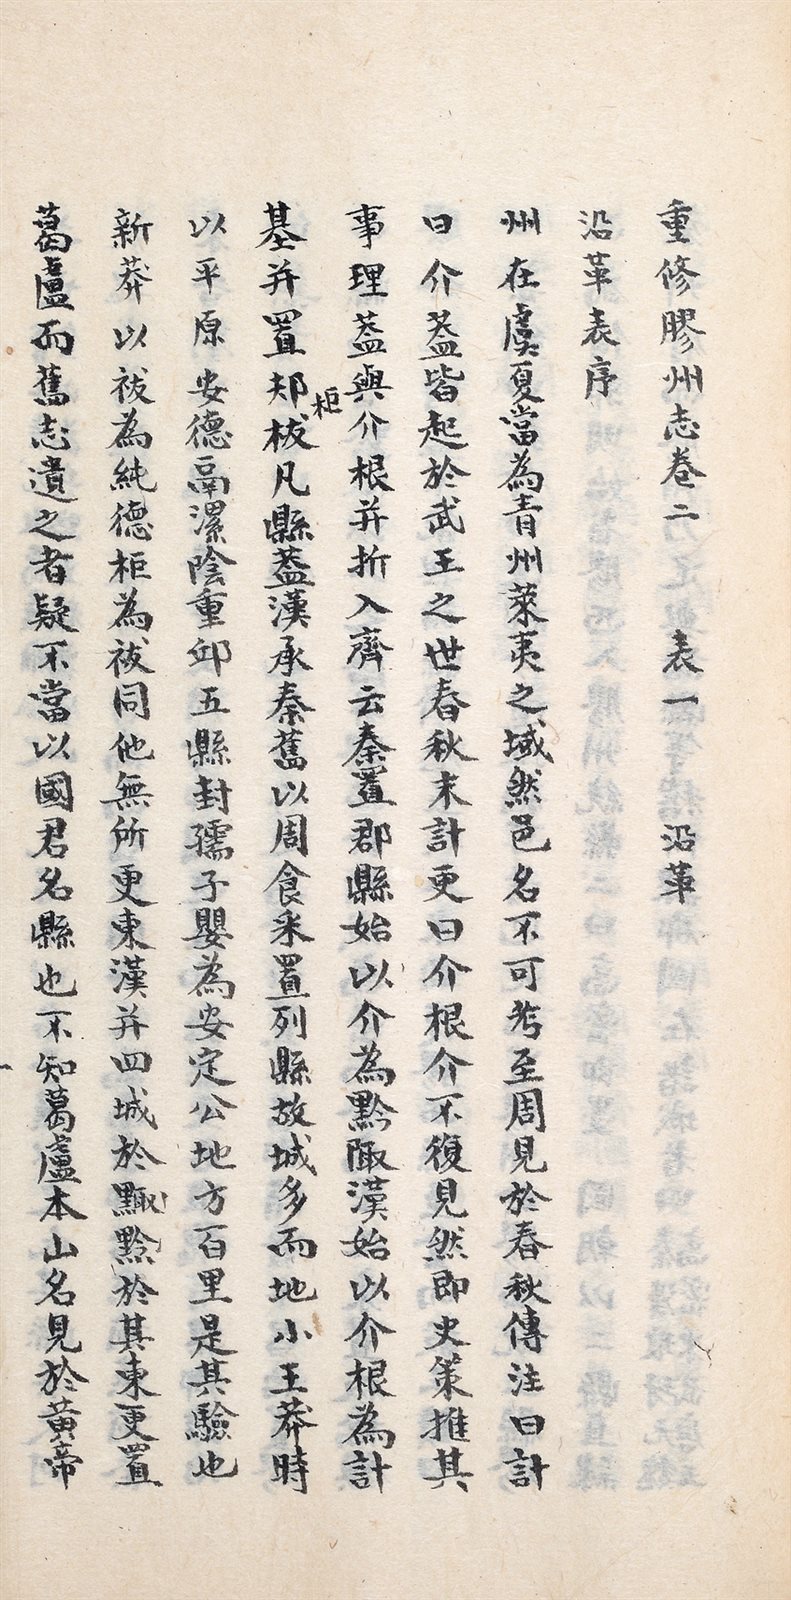 重修膠州志卷二　表一　沿革
沿革表序
州在虞夏當為青州萊夷之域然邑名不可考至周見於春秋傳注曰計
曰介蓋皆起於武王之世春秋末計更曰介根介不復見然即史策推其
事理蓋與介根并折入齊云秦置郡縣始以介為黔陬漢始以介根為計
基并置邞柜祓凡縣蓋漢承秦舊以周食采置列縣故城多而地小王莽時
以平原安德鬲漯陰重邱五縣封孺子嬰為安定公地方百里是其驗也
新莽以祓為純德柜為祓同他無所更東漢并四城於陬黔於其東更置
葛盧而舊志遺之者疑不當以國君名縣也不知葛盧本山名見於黃帝